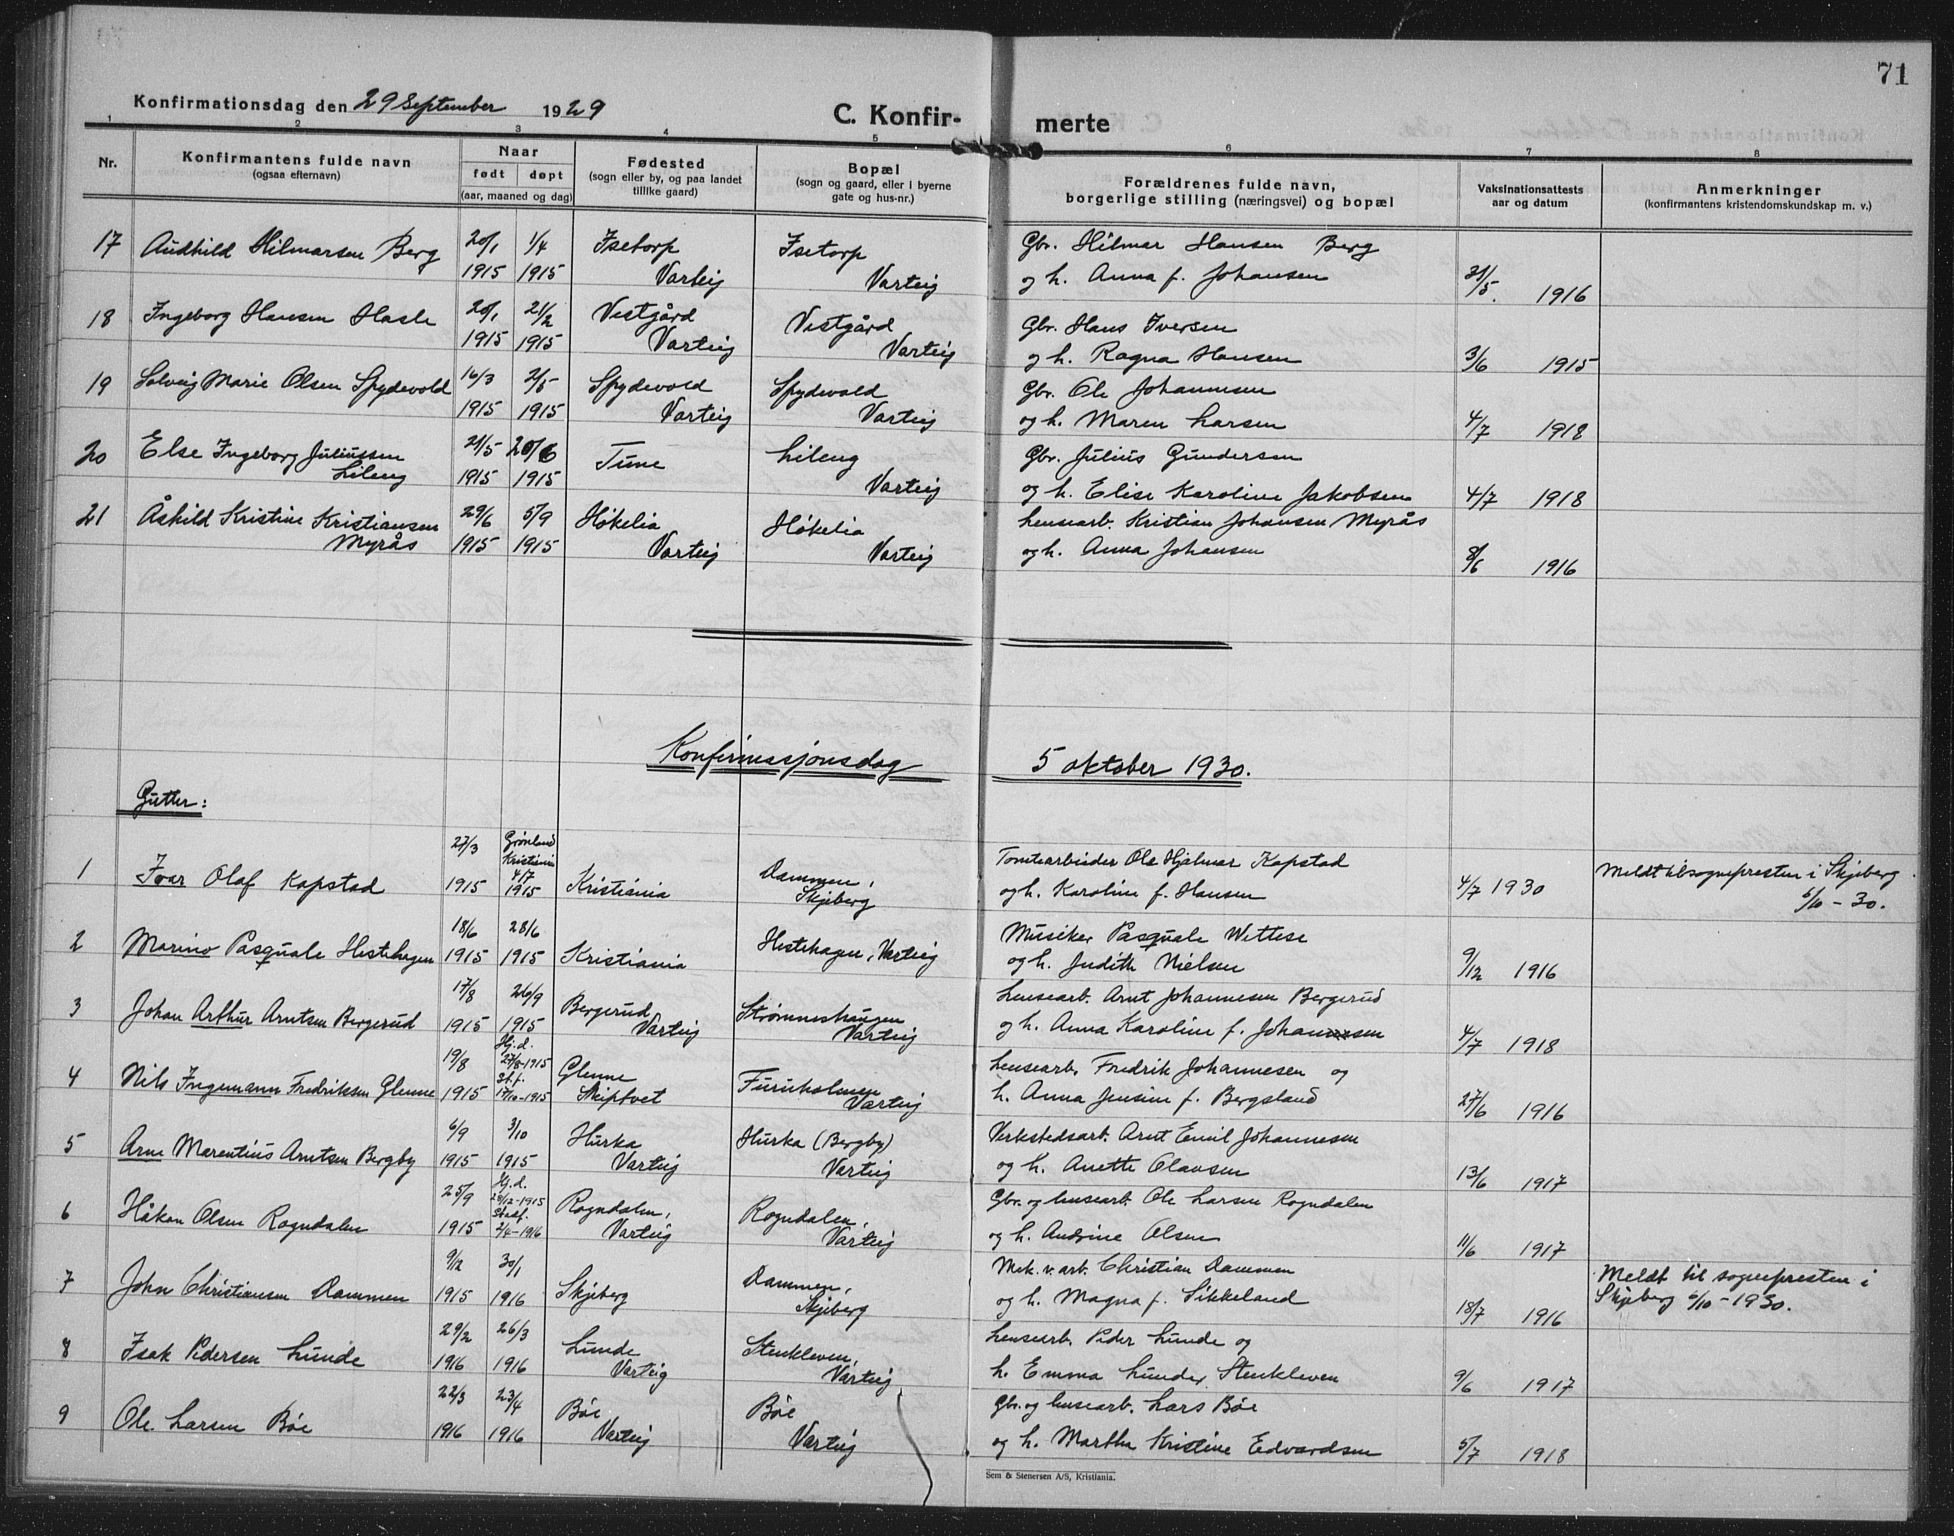 71
Konfirmationsdag den 29 September 1929
C. Konfir- merte
1 2 3 4 5 6 7 8
Nr.
Konfirmantens fulde navn
(ogsaa efternavn)
Naar
født døpt
(aar, maaned og dag)
Fødested
(sogn eller by, og paa landet
tillike gaard)
Bopæl
(sogn og gaard, eller i byerne
gate og hus-nr.)
Forældrenes fulde navn,
borgerlige stilling (næringsvei) og bopæl
Vaksinationsattests
aar og datum
Anmerkninger
(konfirmantens kristendomskundskap m. v.)
17 Audhild Hilmarsen Berg 20/1 1/4 Isetorp Isetorp Gbr. Hilmar Hansen Berg
1915 1915 Varteig Varteig og h. Anna f. Johansen 31/5. 1916
18 Ingeborg Hansen Hasle 20/1 21/2 Vestgård Vestgård Gbr. Hans Iversen
1915 1915 Varteig Varteig og h. Ragna Hansen 3/6 1915
19 Solveig Marie Olsen Spydevold 16/3 2/5 Spydevold Spydevold Gbr. Ole Johannesen
1915 1915 Varteig Varteig og h. Maren Larsen 4/7 1918
20 Else Ingeborg Juliussen 21/5 20/6 Tune Lileng Gbr. Julius Gundersen
Lileng 1915 1915 Varteig og h. Elise Karoline Jakobsen 4/7 1918
21 Åshild Kristine Kristiansen 29/6 5/9 Høkelia Høkelia Lensearb. Kristian Johansen Myrås
Myrås 1915 1915 Varteig Varteig og h. Anna Johansen 8/6 1916
Konfirmasjonsdag 5 oktober 1930.
Gutter:
1 Ivar Olaf Kapstad 27/3 1915 Grønland Kristiania 4/7 1915 Kristiania Dammen, Skjeberg Tomtearbeider Ole Hjalmar Kapstad
og h. Karoline f. Hansen 4/7 1930 Meldt til sognepresten i Skjeberg
6/10 - 30.
2 Marino Pasquale Hestehagen 18/6 28/6 Kristiania Hestehagen, Varteig Musiker Pasquale Wittese
1915 1915 og h. Judith Nielsen 9/12 1916
3 Johan Arthur Arntsen Bergerud 17/8 26/9 Bergerud Strømneshaugen Lensearb. Arnt Johannesen Bergerud
1915 1915 Varteig Varteig og h. Anna Karoline f. Johannesen 4/7 1918
4 Nils Ingemann Fredriksen Glenne 19/8 1915 Hj.d. 27/8-1915 St.f. 17/10-1915 Glenne Skiptvet Furuholmen Varteig Lensearb. Fredrik Johannesen og
h. Anna Jensine f. Bergsland 27/6 1916
5 Arne Marentius Arntsen Bergby 6/9 3/10 Hurka Hurka (Bergby) Verkstedsarb. Arnt Emil Johannesen
1915 1915 Varteig Varteig og h. Anette Olavsen 13/6 1917
6 Håkon Olsen Rogndalen 25/9 1915 Hj.d. 28/12-1915 Stadf. 2/4-1916 Rogndalen, Varteig Rogndalen, Varteig Gbr. og lensearb. Ole Larsen Rogndalen
og h. Andrine Olsen 11/6 1917
7 John Christiansen Dammen 9/12 30/1 Skjeberg Dammen, Skjeberg Mek. v. arb. Christian Dammen
1915 1916 og h. Magna f. Sikkeland 18/7 1916 Meldt til sognepresten i
Skjeberg 6/10 - 1930.
8 Isak Pedersen Lunde 29/2 26/3 Lunde Stenkleven, Lensearb. Peder Lunde og
1916 1916 Varteig Varteig h. Emma Lunder Stenkleven 9/6 1917
9 Ole Larsen Bøe 22/3 23/4 Bøe Bøe Gbr. og lensearb. Lars Bøe
1916 1916 Varteig Varteig og h. Marthe Kristine Edvardsen 5/7 1918
Sem & Stenersen A/S, Kristiania.